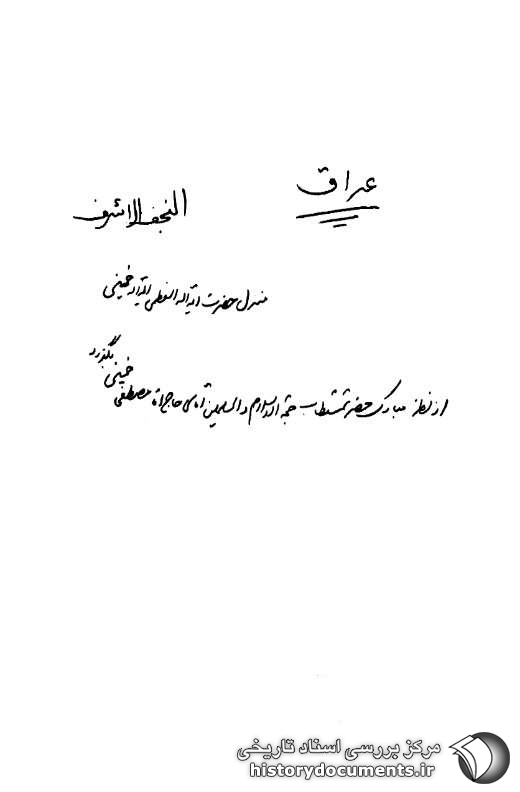 عراق
النجف الاشرف
منزل حضرت آیة اله العظمی خمینی
از نظر مبارک حضرت مستطاب حجة الاسلام والمسلمین آقای حاج آقا مصطفی خمینی بگذرد
مرکز بررسی اسناد تاریخی
historydocuments.ir